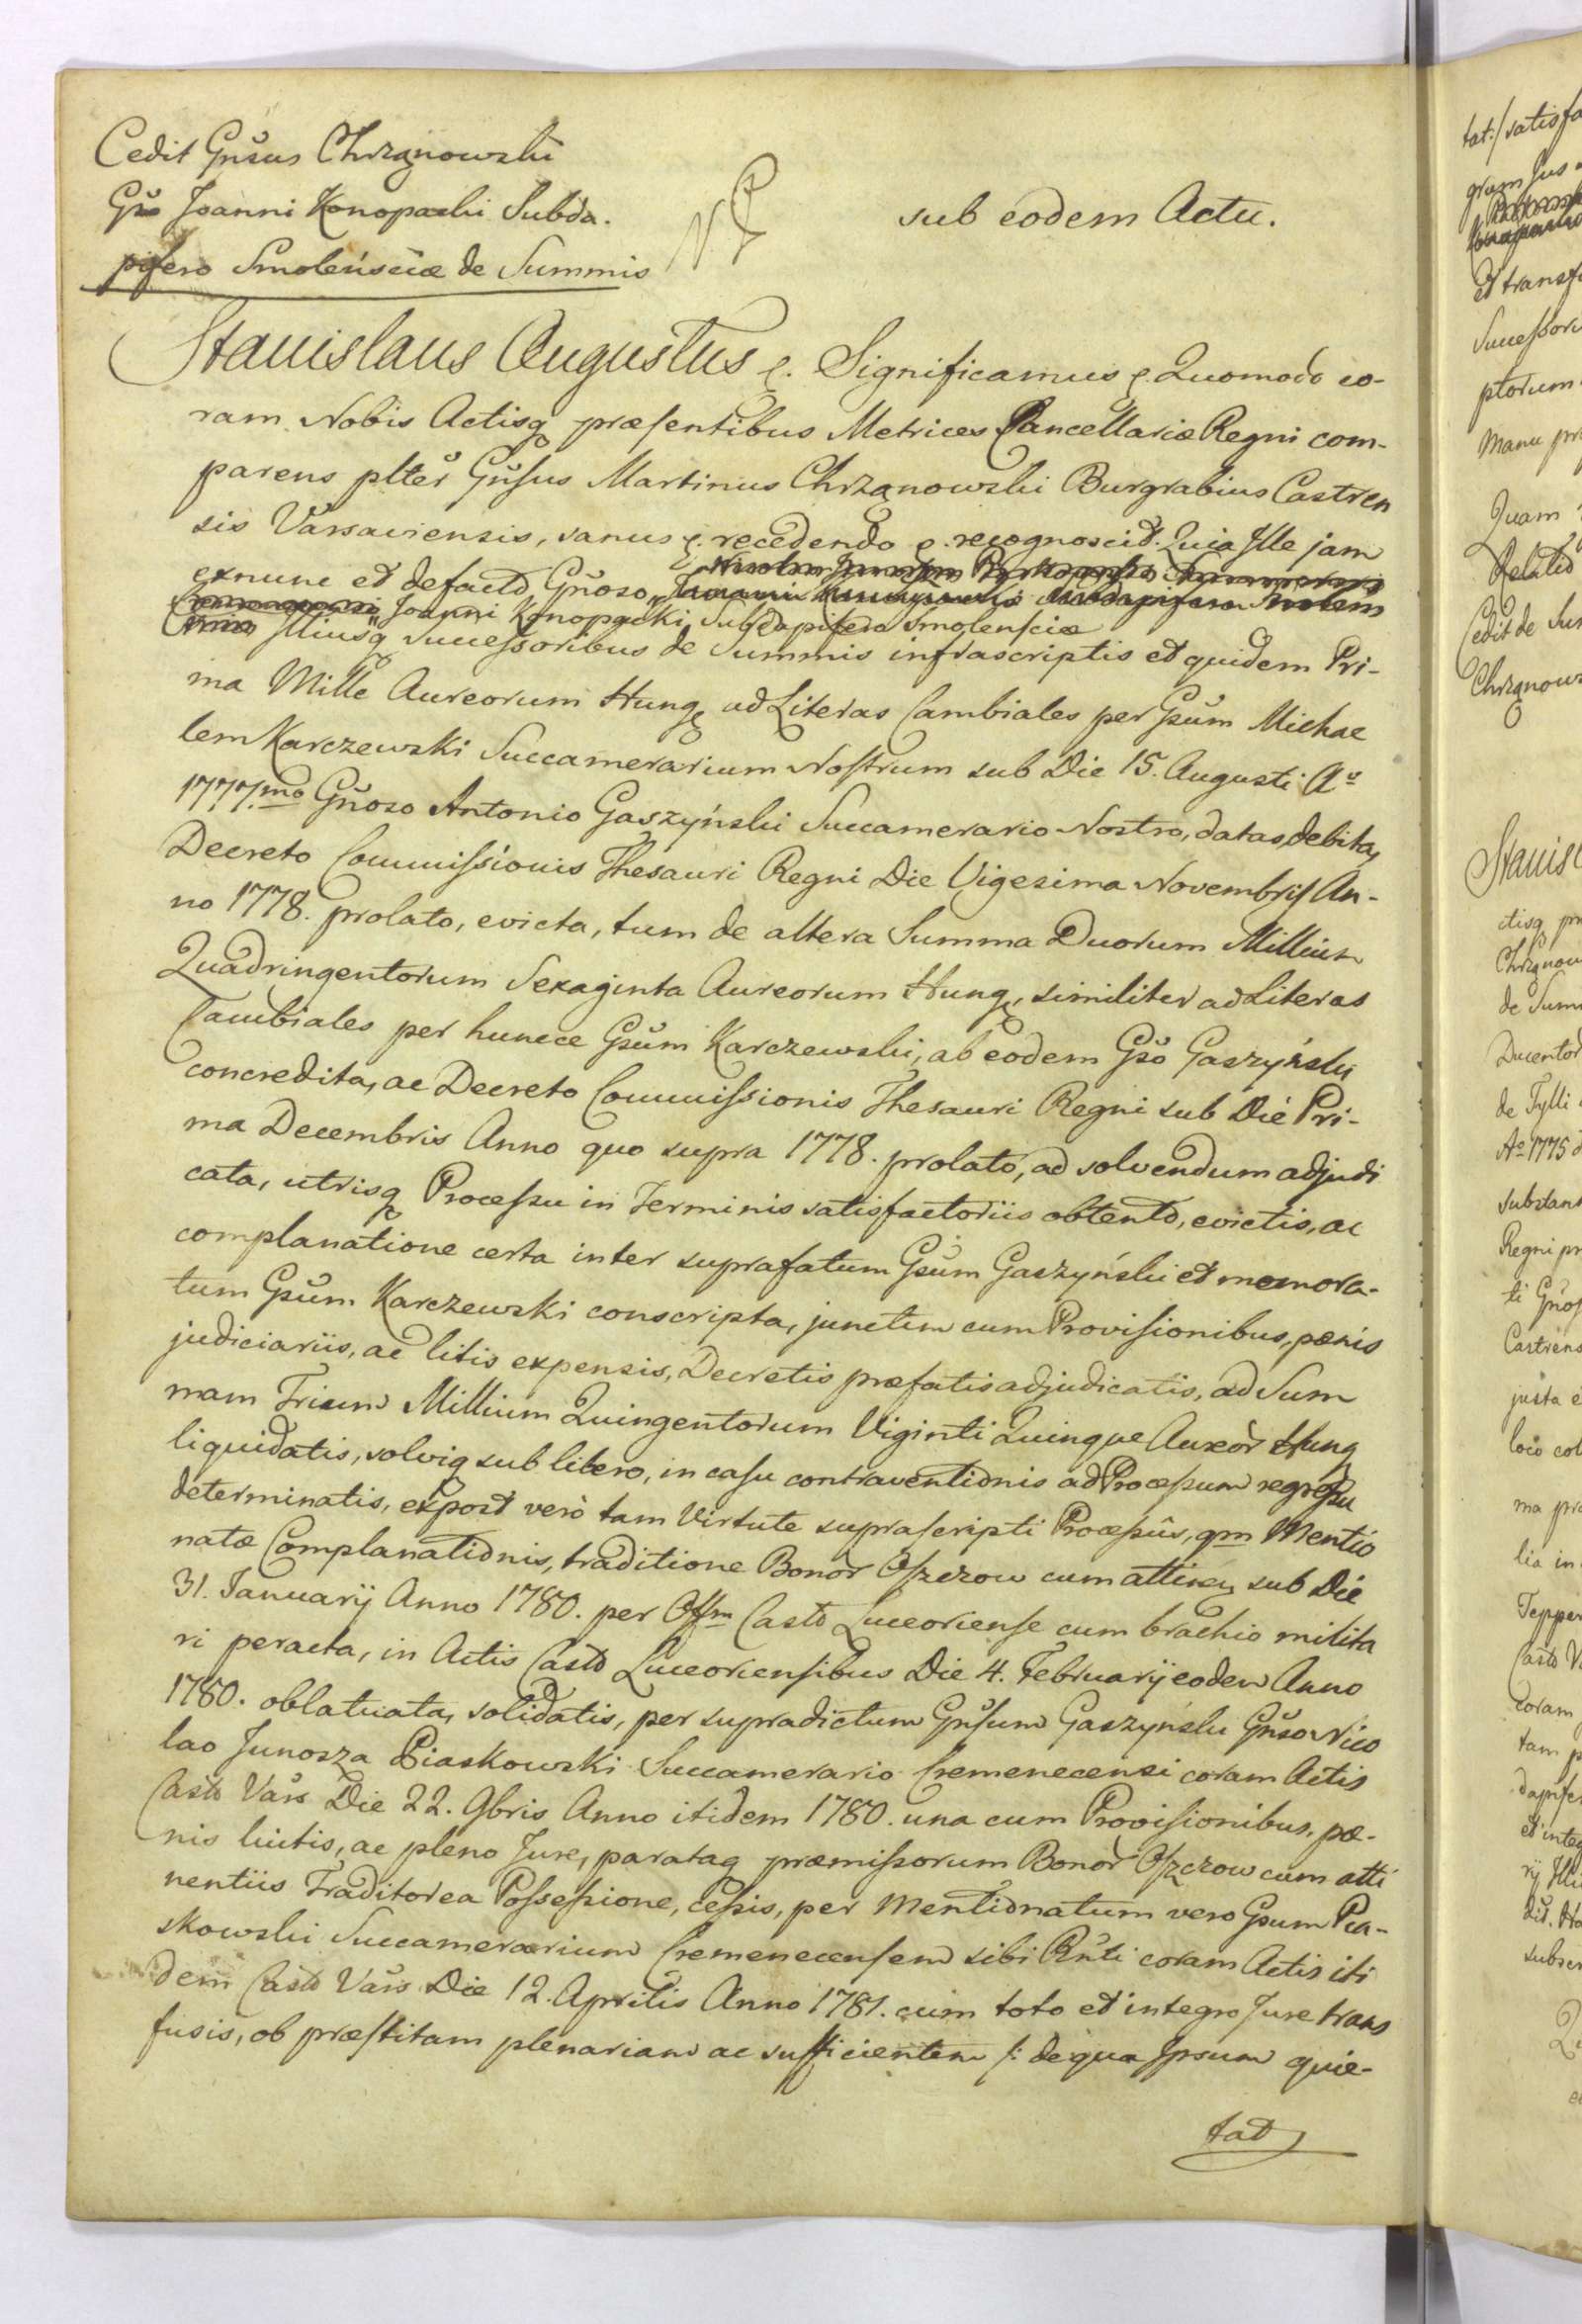 Cedit Gnsus Chrzanowski
Gso Joanni Konopacki Subda.
pifero Smolensciæ de Summis
sub eodem Actu.
Stanislaus Augustus &. Significamus &. Quomodo co-
ram Nobis Actisq præsentibus Metrices Cancellariæ Regni com-
parens plter Gnsus Martinus Chrzanowski Burgrabius Castren
sis Varsaviensis, sanus &. recedendo &. recognoscit. Quia Ille jam
exnunc et defacto Gnoso
Joanni Konopacki Subdapifero Smolensciæ
Illiusq Successoribus de Summis infrascriptis et quidem Pri-
ma Mille Aureorum Hung. ad Literas Cambiales per Gsum Michae
lem Karczewski Succamerarium Nostrum sub Die 15. Augusti Ao
1777.mo Gnoso Antonio Gaszyński Succamerario Nostro, datas, debita,
Decreto Commissionis Thesauri Regni Die Vigesima Novembris An-
no 1778. prolato, evicta, tum de altera Summa Duorum Millium
Quadringentorum Sexaginta Aureorum Hung., similiter ad Literas
Cambiales per hunece Gsum Karczewski, ab eodem Gso Gaszyński
concredita, ac Decreto Commissionis Thesauri Regni sub Die Pri-
ma Decembris Anno quo supra 1778. prolato, ad solvendum adjudi
cata, utrisq Processu in Terminis satisfactoriis obtento, evictis, ac
complanatione certa inter suprafatum Gsum Gaszyński et memora-
tum Gsum Karczewski conscripta, junctim cum Provisionibus, pænis
judiciariis, ac litis expensis, Decretis præfatis adjudicatis, ad Sum
mam Trium Millium Quingentorum Viginti Quinque Aureor Hung
liquidatis, solviq sub libero, in casu contraventionis ad Processum regressu
determinatis, expost verò tam Virtute suprascripti Processûs, qm Mentio
natæ Complanationis, traditione Bonor Oszczow cum attinen, sub Die
31. Januarij Anno 1780. per Offm Castr Luceoriense cum brachio milita
ri peracta, in Actis Castr Luceoriensibus Die 4. Februarij eodem Anno
1780. oblatuata, solidatis, per supradictum Gnsum Gaszyński Gnso Nico
lao Junosza Piaskowski Succamerario Cremenecensi coram Actis
Castr Vars Die 22. 9bris Anno itidem 1780. una cum Provisionibus, pæ-
nis luitis, ac pleno Jure, parataq præmissorum Bonor Oszczow cum atti
nentiis Traditorea Possessione, cessis, per Mentionatum vero Gsum Pia-
skowski Succamerarium Cremenecensem sibi Rnti coram Actis iti
dem Castr Vars Die 12. Aprilis Anno 1781. cum toto et integro Jure trans
fusis, ob præstitam plenariam ac sufficientem /: de qua Ipsum quie-
tat